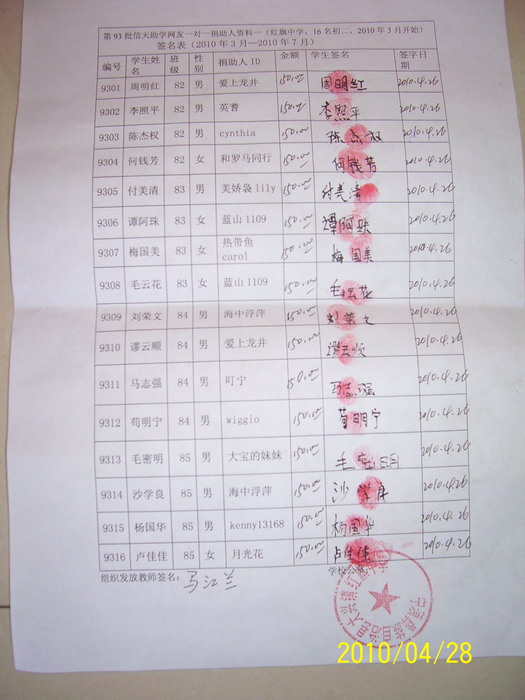 第93批信天助学网友一对一捐助人资料一(红旗中学,16名初二,2010年3月开始)
签名表(2010年3月—2010年7月)
编号 学生姓名 班级 性别 捐助人ID 金额 学生签名 签字日期
9301 周明红 82 男 爱上龙井 150.00 周明红 2010.4.26
9302 李照平 82 男 英耆 150.00 李照平 2010.4.26
9303 陈杰权 82 男 cynthia 150.00 陈杰权 2010.4.26
9304 何钱芳 82 女 和罗马同行 150.00 何钱芳 2010.4.26
9305 付美清 83 男 美娇袅lily 150.00 付美清 2010.4.26
9306 谭阿珠 83 女 蓝山1109 150.00 谭阿珠 2010.4.26
9307 梅国美 83 女 热带鱼carol 150.00 梅国美 2010.4.26
9308 毛云花 83 女 蓝山1109 150.00 毛云花 2010.4.26
9309 刘荣文 84 男 海中浮萍 150.00 刘荣文 2010.4.26
9310 谬云顺 84 男 爱上龙井 150.00 谬云顺 2010.4.26
9311 马志强 84 男 叮宁 150.00 马志强 2010.4.26
9312 苟明宁 84 男 wiggio 150.00 苟明宁 2010.4.26
9313 毛密明 85 男 大宝的妹妹 150.00 毛密明 2010.4.26
9314 沙学良 85 男 海中浮萍 150.00 沙学良 2010.4.26
9315 杨国华 85 男 kenny13168 150.00 杨国华 2010.4.26
9316 卢佳佳 85 女 月光花 150.00 卢佳佳 2010.4.26
组织发放教师签名: 马江兰 学校
宁蒗彝族自治县大兴镇红旗
2010/04/28